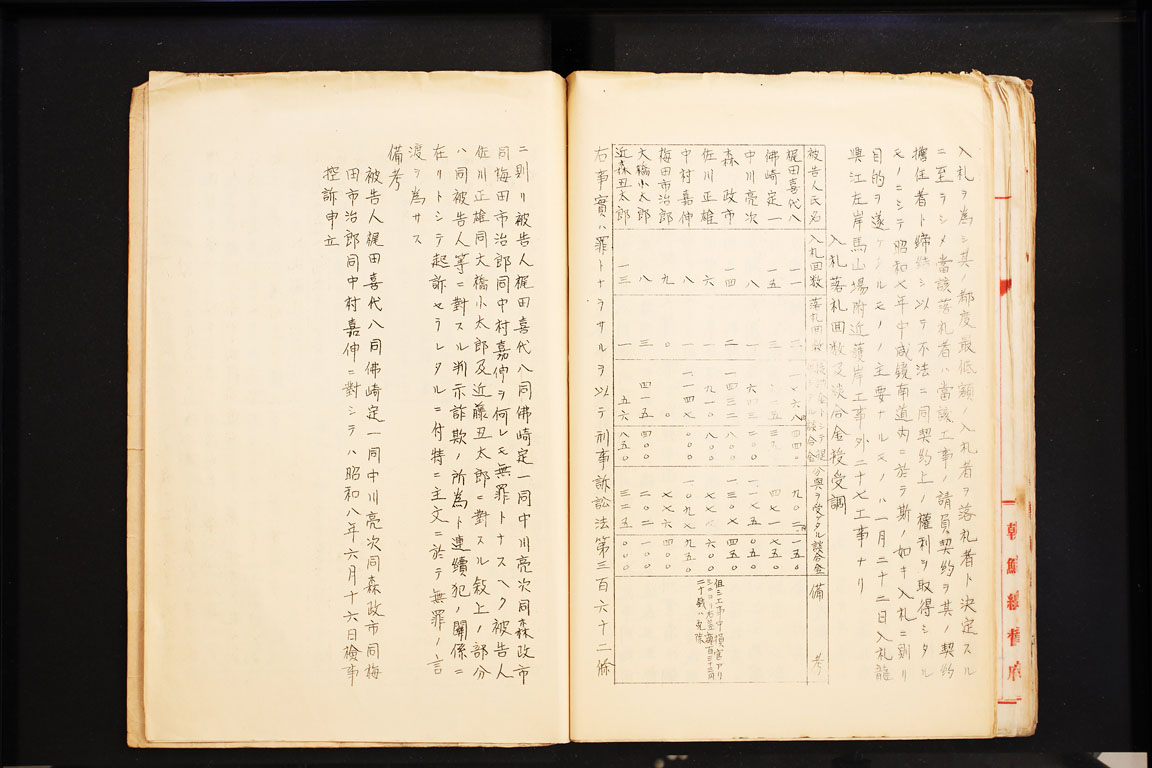 入札ヲ為シ其ノ都度最低額ノ入札者ヲ落札者ト決定スル
ニ至ラシメ當該落札者ハ當該工事ノ請負契約ヲ其ノ契約
擔任者ト締結シ以テ不法ニ同契約上ノ權利ヲ取得シタル
モノニシテ昭和七年中咸鏡南道内ニ於テ斯ノ如キ入札ニ則リ
目的ヲ遂ケタルモノノ主要ナルモノハ一月二十二日入札龍
興江左岸馬山場附近護岸工事外二十七工事ナリ
入札落札回數及談合金授受調
被告人氏名 入札回數 落札回數 談合金 分與ヲ受ケタル談合金 備考
梶田喜代八 一一 二
佛崎定一 一五 三
中川亮次 八 一
森政市 一四 二 一四三二 八〇〇 一三〇七 四五〇
佐川正雄 六 一 九一〇 八〇〇
中村嘉伸 八 一 一一四七 〇〇〇 一〇九七 九五〇
梅田市治郎 九 〇 〇 七七六 四〇〇
大橋小太郎 八 三 四一五 四〇〇 二〇二 一〇〇
近森丑太郎 一三 一 五六 八五〇 三二五 〇〇〇
右事實ハ罪トナラサルヲ以テ刑事訴訟法第三百六十二條
ニ則リ被告人梶田喜代八同佛崎定一同中川亮次同森政市
同梅田市治郎同中村嘉伸ヲ何レモ無罪トナスヘク被告人
佐川正雄同大橋小太郎及近藤丑太郎ニ對スル敍上ノ部分
ハ同被告人等ニ對スル判示詐欺ノ所爲ト連續犯ノ關係ニ
在リトシテ起訴セラレタルニ付特ニ主文ニ於テ無罪ノ言
渡ヲ為サス
備考
被告人梶田喜代八同佛崎定一同中川亮次同森政市同梅
田市治郎同中村嘉伸ニ對シテハ昭和八年六月十六日檢事
控訴申立
朝鮮總督府